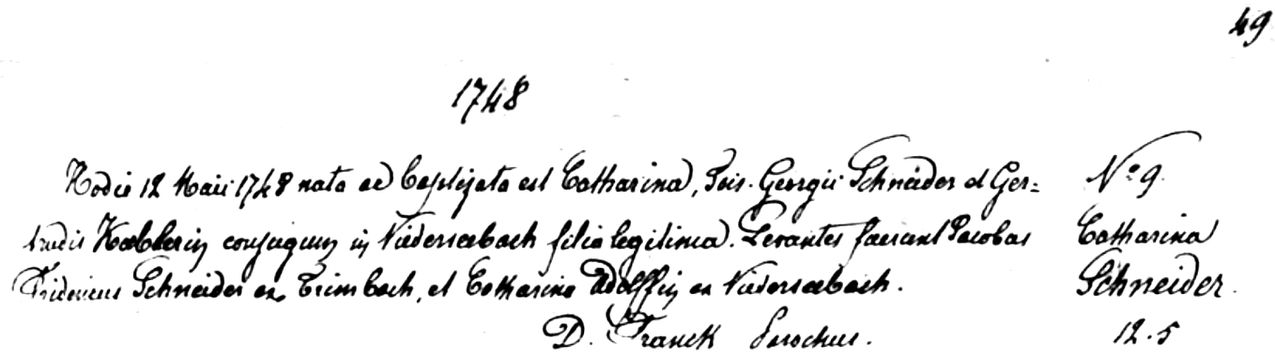 49
1748
Hodie 12 Maii 1748 nata ac baptizata est Catharina, Jois. Georgii Schneider et Ger=
trudis Kobblerin conjugum in Niederseebach filia legitima. Levantes fuerunt Jacobus
Fridericus Schneider ex Trimbach, et Catharina Adolffin ex Niederseebach.
D. Franck Parochus.
No 9.
Catharina
Schneider.
12.5